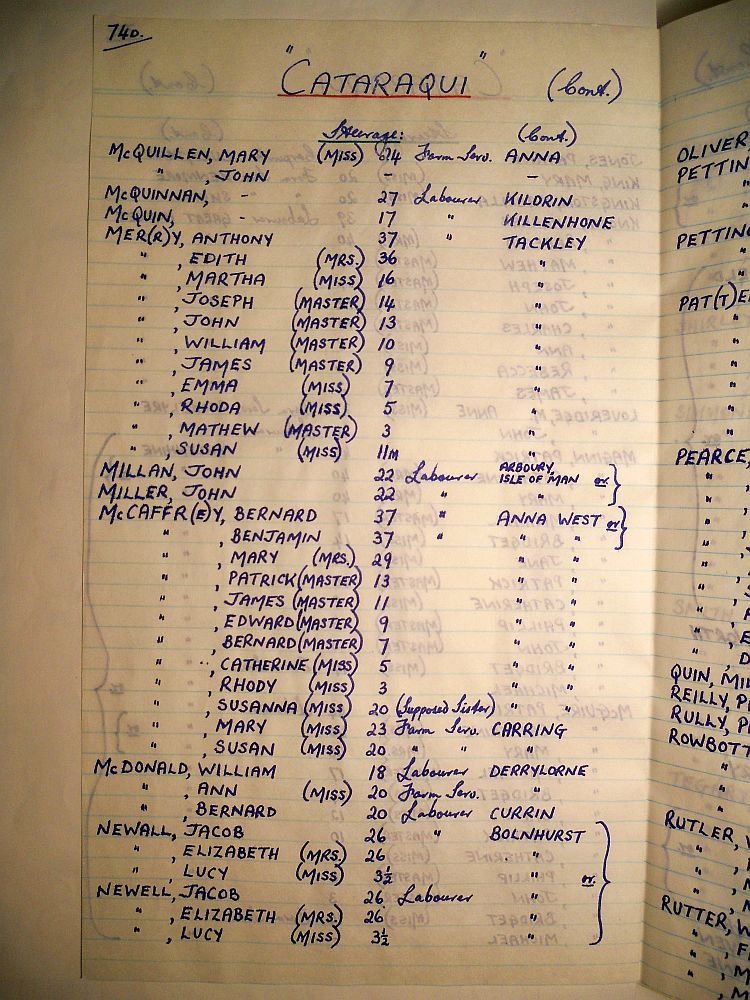 740.
"CATARAQUI" (Cont.)
Steerage: (Cont.)
McQUILLEN, MARY (MISS) 24 Farm Serv. ANNA
" , JOHN - -
McQUINNAN, - 27 Labourer KILDRIN
McQUIN, - 17 " KILLENHONE
MER(R)Y, ANTHONY 37 " TACKLEY
" , EDITH (MRS.) 36 "
" , MARTHA (MISS) 16 "
" , JOSEPH (MASTER) 14 "
" , JOHN (MASTER) 13 "
" , WILLIAM (MASTER) 10 "
" , JAMES (MASTER) 9 "
" , EMMA (MISS) 7 "
" , RHODA (MISS) 5 "
" , MATHEW (MASTER) 3 "
" , SUSAN (MISS) 11m "
MILLAN, JOHN 22 Labourer ARBOURY, ISLE OF MAN or
MILLER, JOHN 22 " "
McCAFFR(E)Y, BERNARD 37 " ANNA WEST or
" , BENJAMIN 37 " " "
" , MARY (MRS.) 29 " "
" , PATRICK (MASTER) 13 " "
" , JAMES (MASTER) 11 " "
" , EDWARD (MASTER) 9 " "
" , BERNARD (MASTER) 7 " "
" , CATHERINE (MISS) 5 " "
" , RHODY (MISS) 3 " "
" , SUSANNA (MISS) 20 (Supposed Sister) " "
" , MARY (MISS) 23 Farm Serv. CARRING
" , SUSAN (MISS) 20 " " "
McDONALD, WILLIAM 18 Labourer DERRYLORNE
" , ANN (MISS) 20 Farm Serv. "
" , BERNARD 20 Labourer CURRIN
NEWALL, JACOB 26 " BOLNHURST
" , ELIZABETH (MRS.) 26 "
" , LUCY (MISS) 3½ " or
NEWELL, JACOB 26 Labourer "
" , ELIZABETH (MRS.) 26 "
" , LUCY (MISS) 3½ "
OLIVER,
PETTIN
"
"
PETTING
"
PAT(T)E
"
"
"
"
"
PEARCE,
"
"
"
"
"
"
"
" , E
" , D
QUIN, MI
REILLY, P
RULLY, P
ROWBOTT
"
"
"
RUTLER, W
"
"
"
RUTTER, W
" , F
" , M
" , M